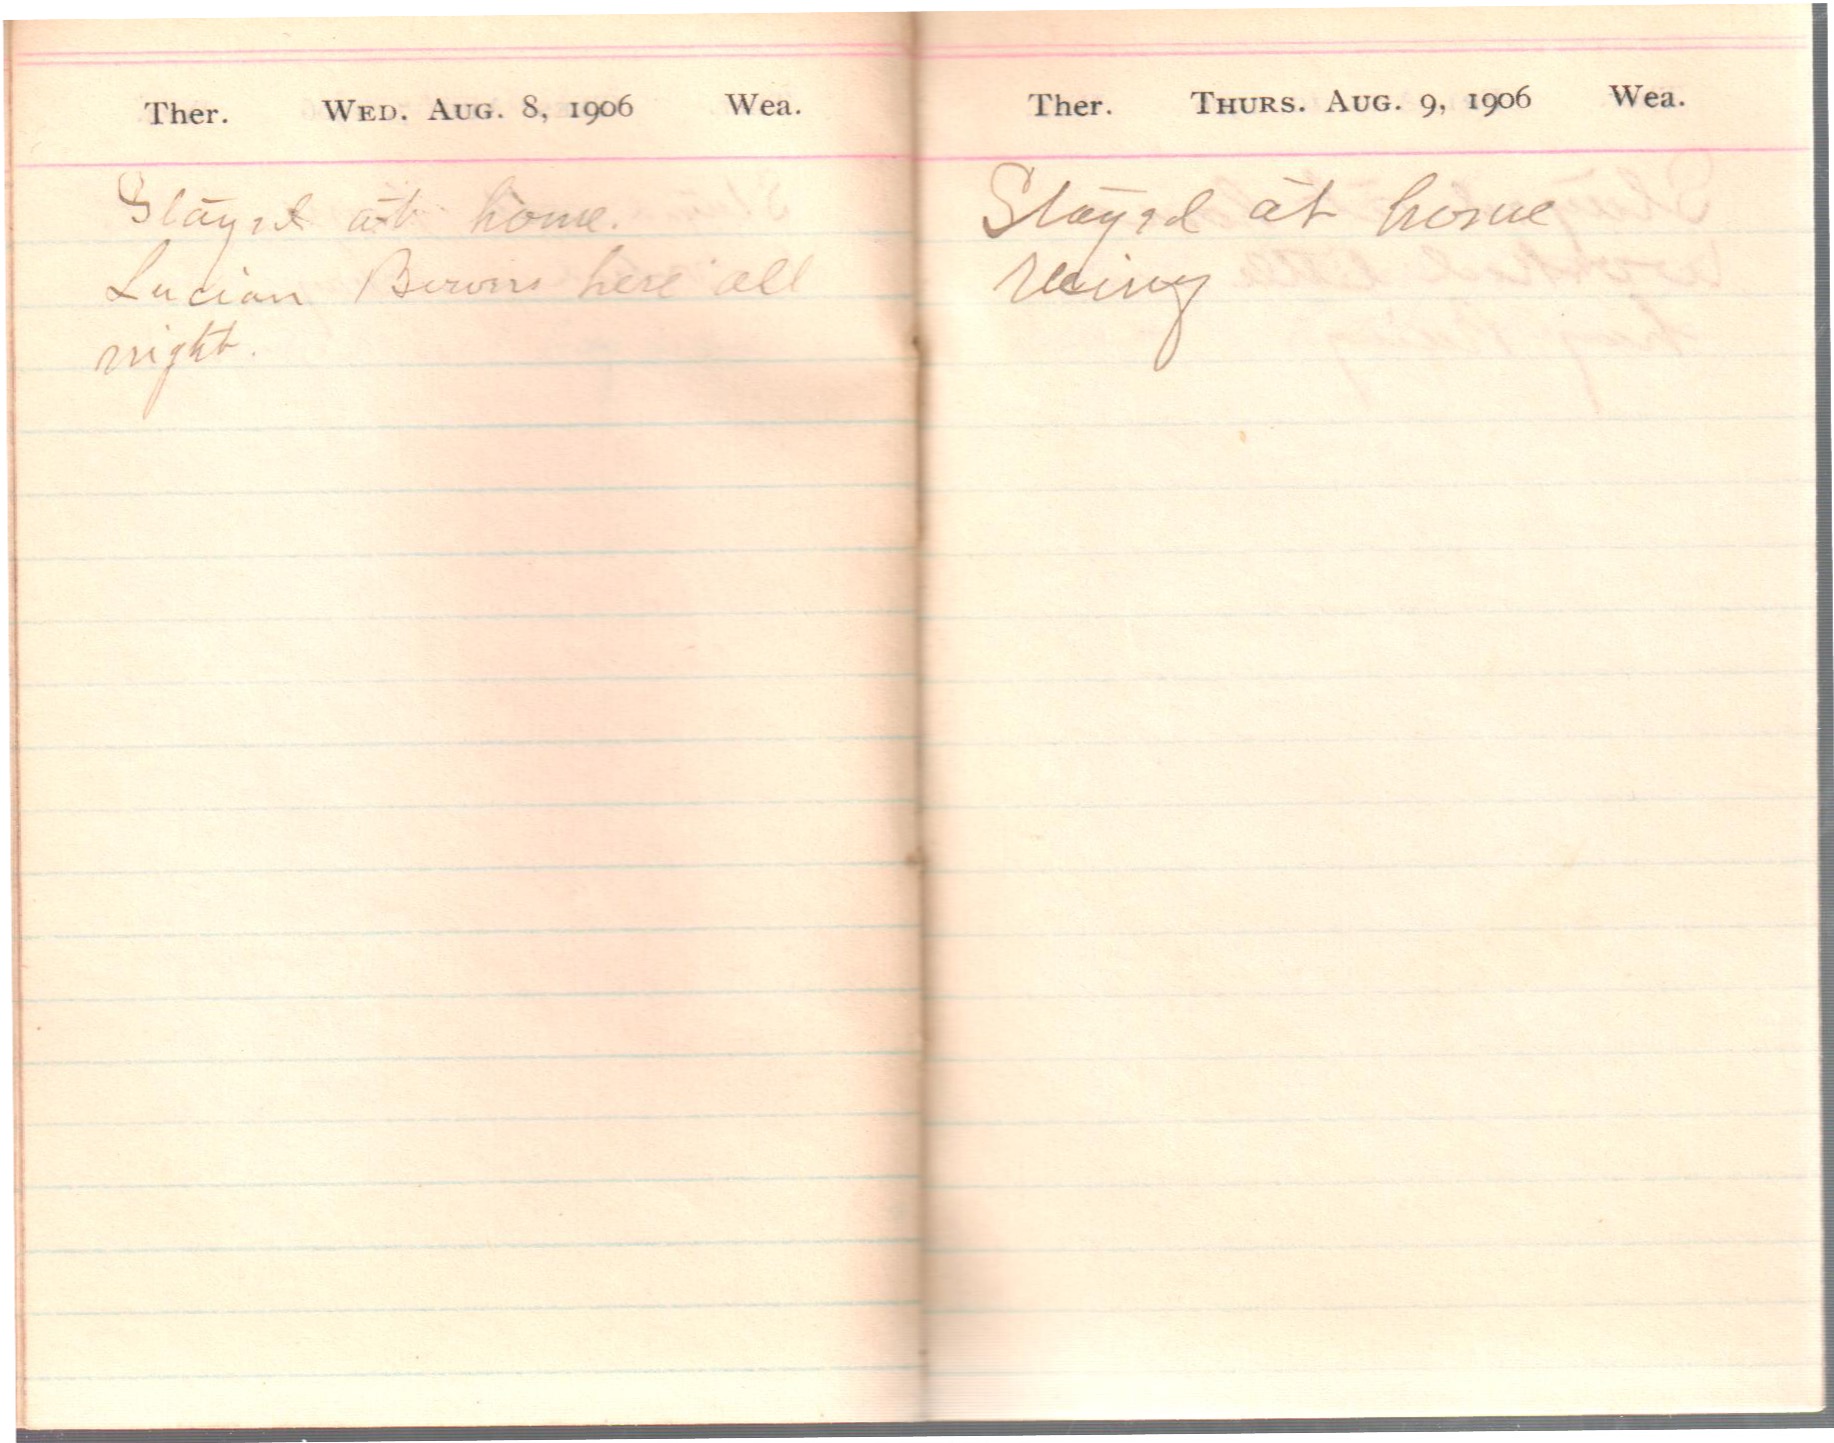 Ther. WED. AUG. 8, 1906 Wea.
Stayed at home.
Lucian here all
night.
Ther. THURS. AUG. 9, 1906 Wea.
Stayed at home